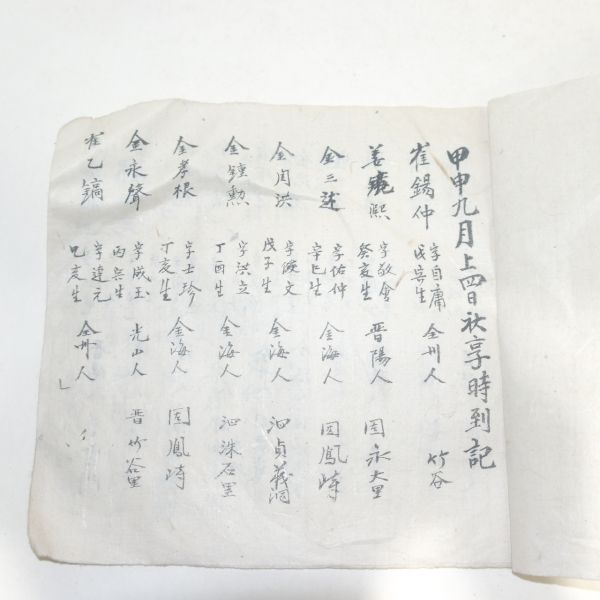 甲申九月上四日秋享時到記
崔錫仲 字自庸 戊寅生 全州人 竹谷
姜熙 字敬會 癸亥生 晋陽人 固永大里
金三述 字佑仲 辛巳生 金海人 固鳳峙
金閏洪 字俊文 戊子生 金海人 泗貞義洞
金鍾勲 字洪立 丁酉生 金海人 泗洙石里
金孝根 字士珍 丁亥生 金海人 固鳳峙
金永聲 字成玉 丙寅生 光山人 晋竹谷里
崔乙鎬 字達元 乙亥生 全州人